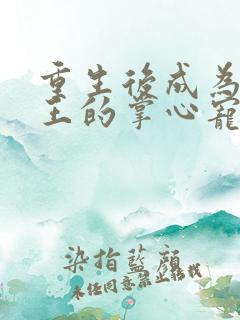 重生後成為
王的掌心寵
染指藍顏
未任同意禁止转载